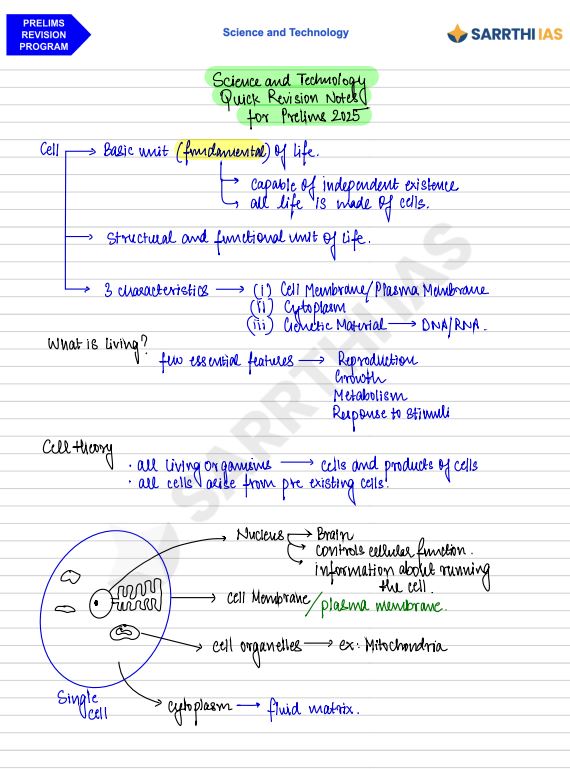 PRELIMS
REVISION
PROGRAM
Science and Technology
SARRTHI IAS
Science and Technology
Quick Revision Notes
for Prelims 2025
Cell → Basic unit (fundamental) of life.
→ capable of independent existence
→ all life is made of cells.
→ Structural and functional unit of life.
→ 3 characteristics → (i) Cell Membrane/Plasma Membrane
(ii) Cytoplasm
(iii) Genetic Material → DNA/RNA.
What is living?
few essential features → Reproduction
Growth
Metabolism
Response to stimuli
Cell theory
· all living organisms → cells and products of cells
· all cells arise from pre existing cells.
Nucleus → Brain
→ controls cellular function.
→ information about running
the cell.
cell Membrane/plasma membrane.
cell organelles → ex: Mitochondria
Single
cell
cytoplasm → fluid matrix.
SARRTHI IAS